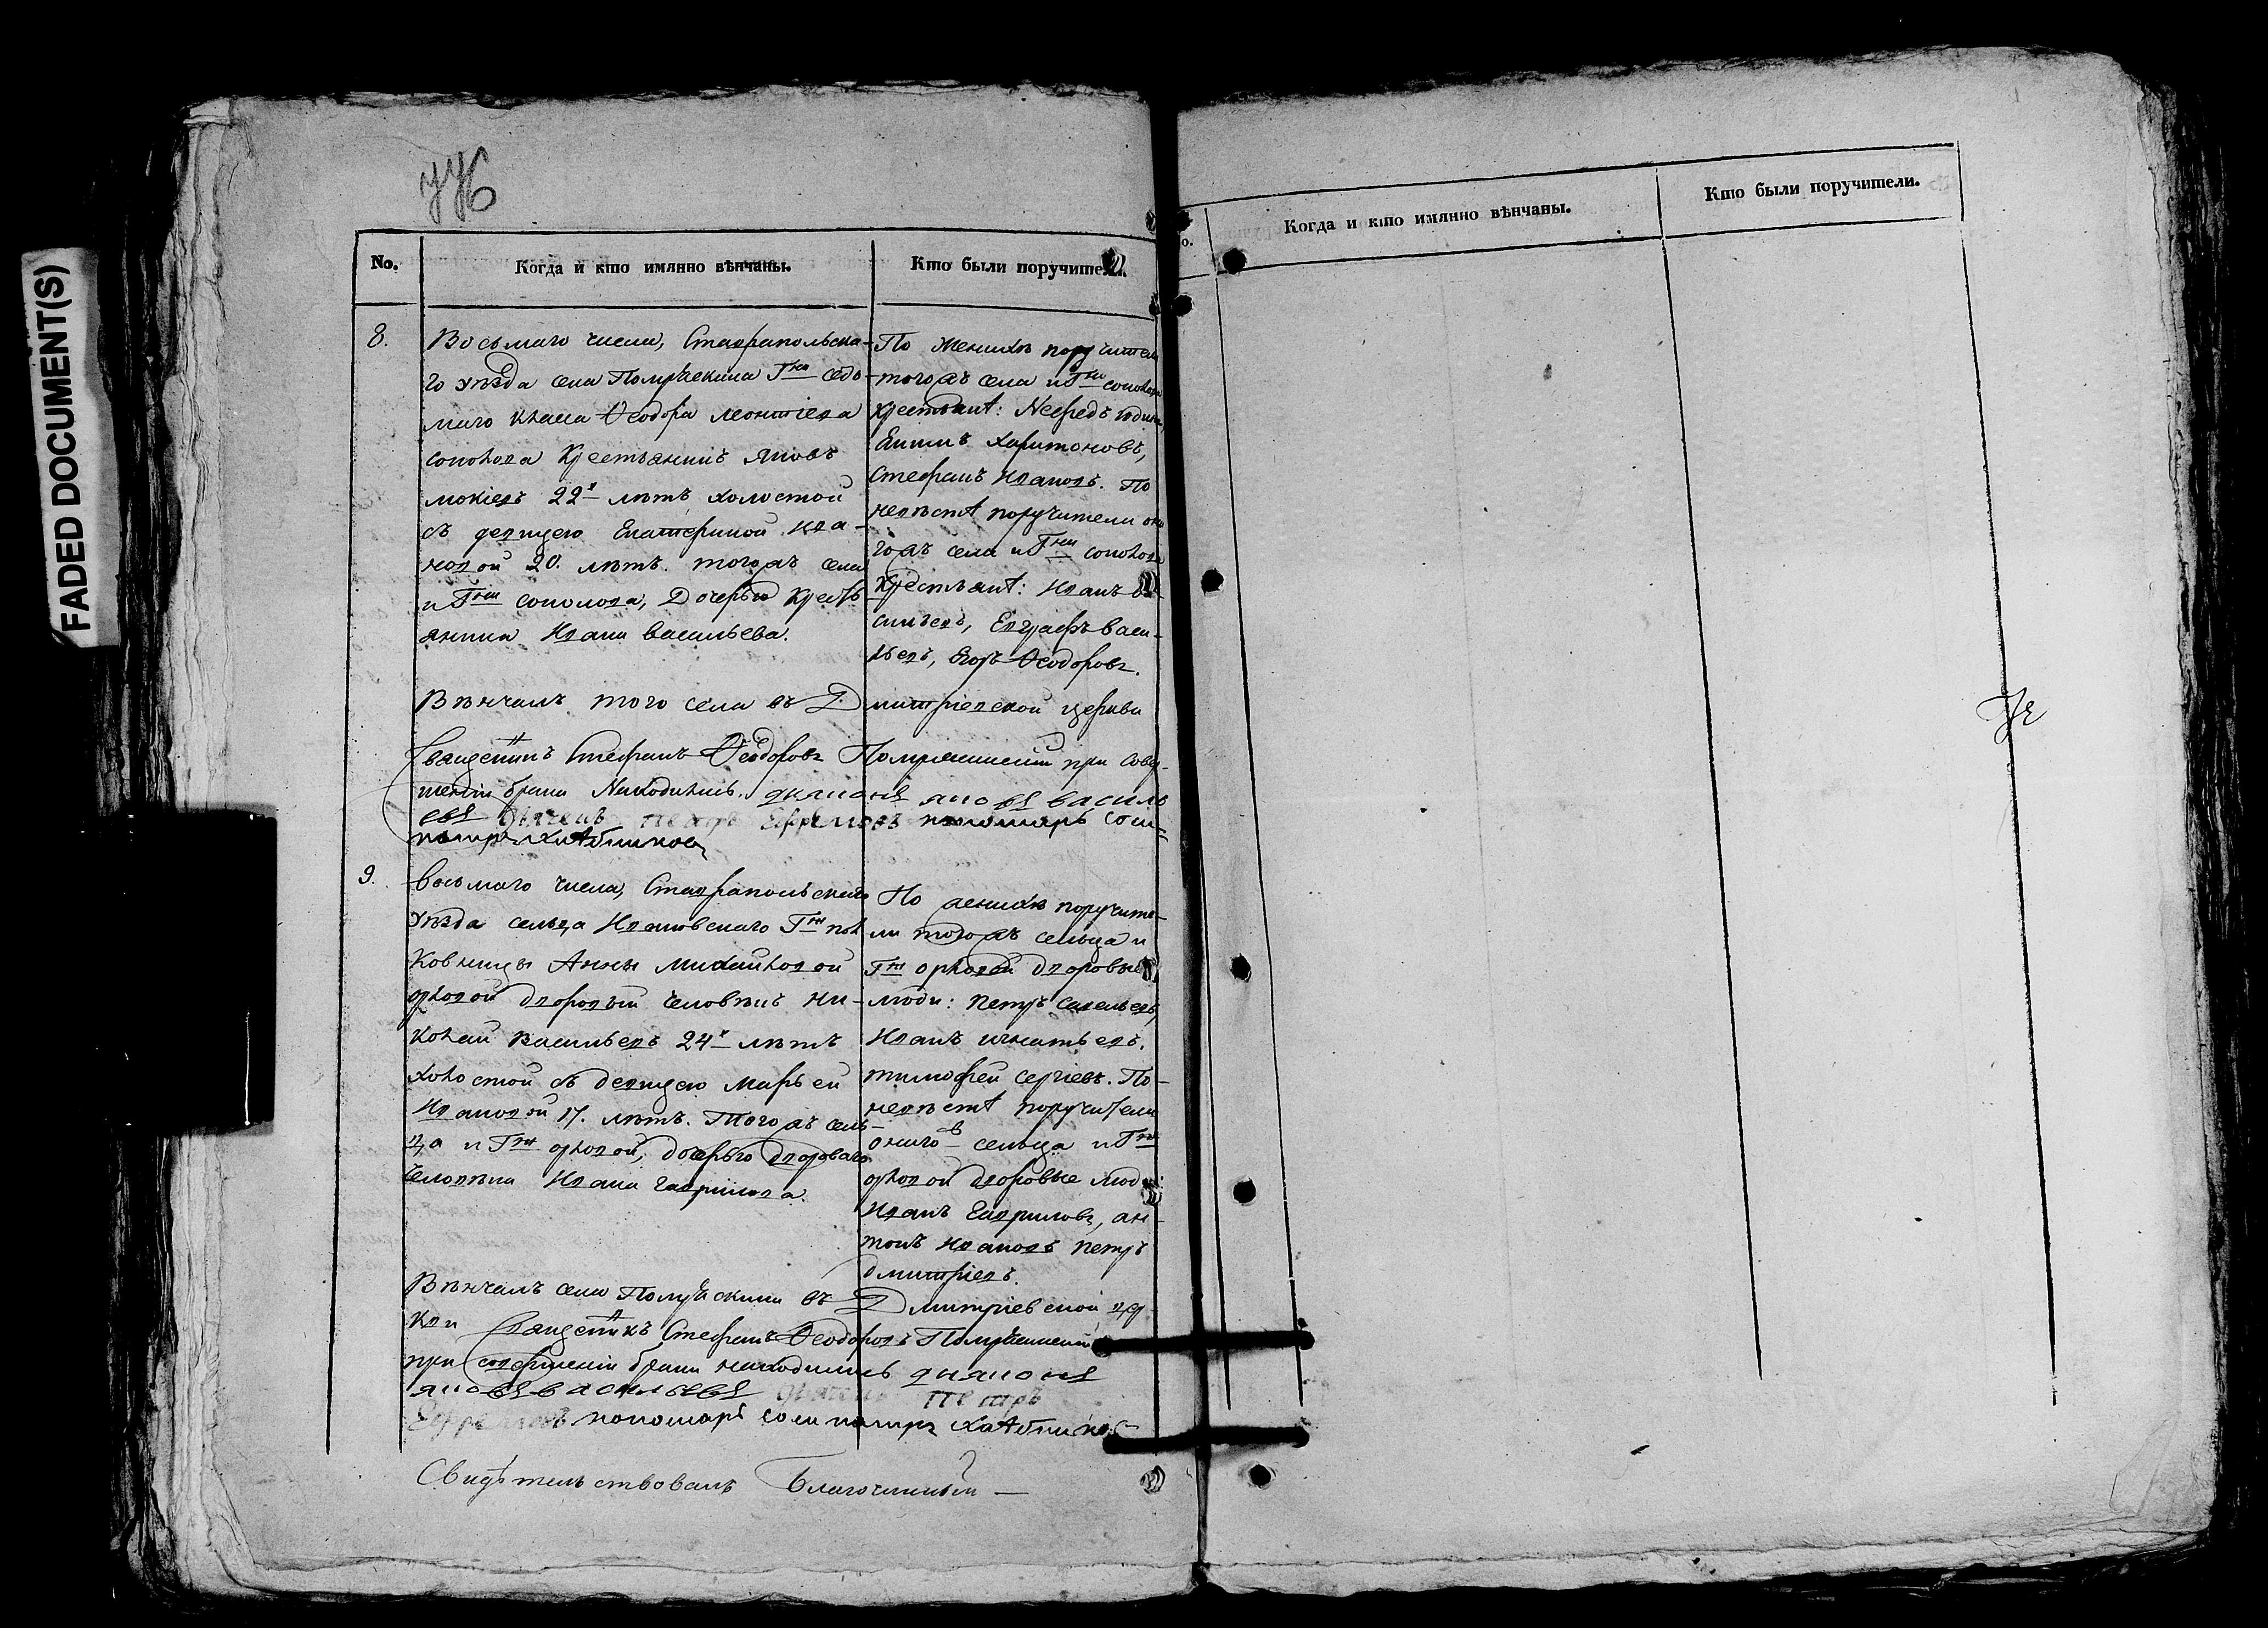 FADED DOCUMENT(S)
776
No.
Когда и кто имянно вѣнчаны.
Кто были поручители.
8.
Восьмаго числа, Ставрапольска-
го уѣзда села Помряскина Гна седь-
маго класа Ѳеодора Леонтіева
Соколова Крестьянинъ Яковъ
Мокіевъ 22х лѣтъ холостой
съ девицею Екатериной Ива-
новой 20. лѣтъ. тогожъ села
и Гна Соколова, Дочерью Кресть
янина Ивана Васильева.
По женихѣ поручители
тогожъ села и Гна Соколова
Крестьянѣ:
Харитоновъ,
Стефанъ Ивановъ. По
невѣстѣ поручители она
гожъ села и Гна Соколова
Крестьянѣ: Иванъ Ва-
сильевъ, Евграфъ Васи-
льевъ, Егоръ Ѳеодоровъ.
Вѣнчалъ того села въ Димитріевской церкви
Священникъ Стефанъ Ѳеодоровъ Помряскинскій при совер-
шеніи брака Находились. диаконъ Яковъ Василь
евъ Дьячекъ Петръ Ефремовъ пономарь Соси-
патръ Хлѣбниковъ
9.
Восьмаго числа, Ставрапольскаго
Уѣзда сельца Ивановскаго Гжи пол
ковницы Анны Михайловой
Орловой дворовый человѣкъ Ни-
колай Васильевъ 24х лѣтъ
холостой съ девицею Марьей
Ивановой 17. лѣтъ. Тогожъ сель-
ца и Гжи Орловой, дочерью двороваго
человѣка Ивана Гаврилова.
По женихѣ поручите-
ли тогожъ сельца и
Гжи Орловой дворовые
люди: Петръ Савельевъ,
Иванъ Игнатьевъ.
Тимофей Сергіевъ. По-
невѣстѣ поручители
онаго сельца и Гжи
Орловой дворовые люди:
Иванъ Гавриловъ, Ан-
тонъ Ивановъ Петръ
Дмитріевъ.
Вѣнчалъ села Помряскина въ Димитріевской цер
кви Священникъ Стефанъ Ѳеодоровъ Помряскинскій
при совершеніи брака находились диаконъ
Яковъ Васильевъ Дьячекъ Петръ
Ефремовъ пономарь Сосипатръ Хлѣбниковъ
Свидѣтельствовалъ Благочинный —
Когда и кто имянно вѣнчаны.
Кто были поручители.